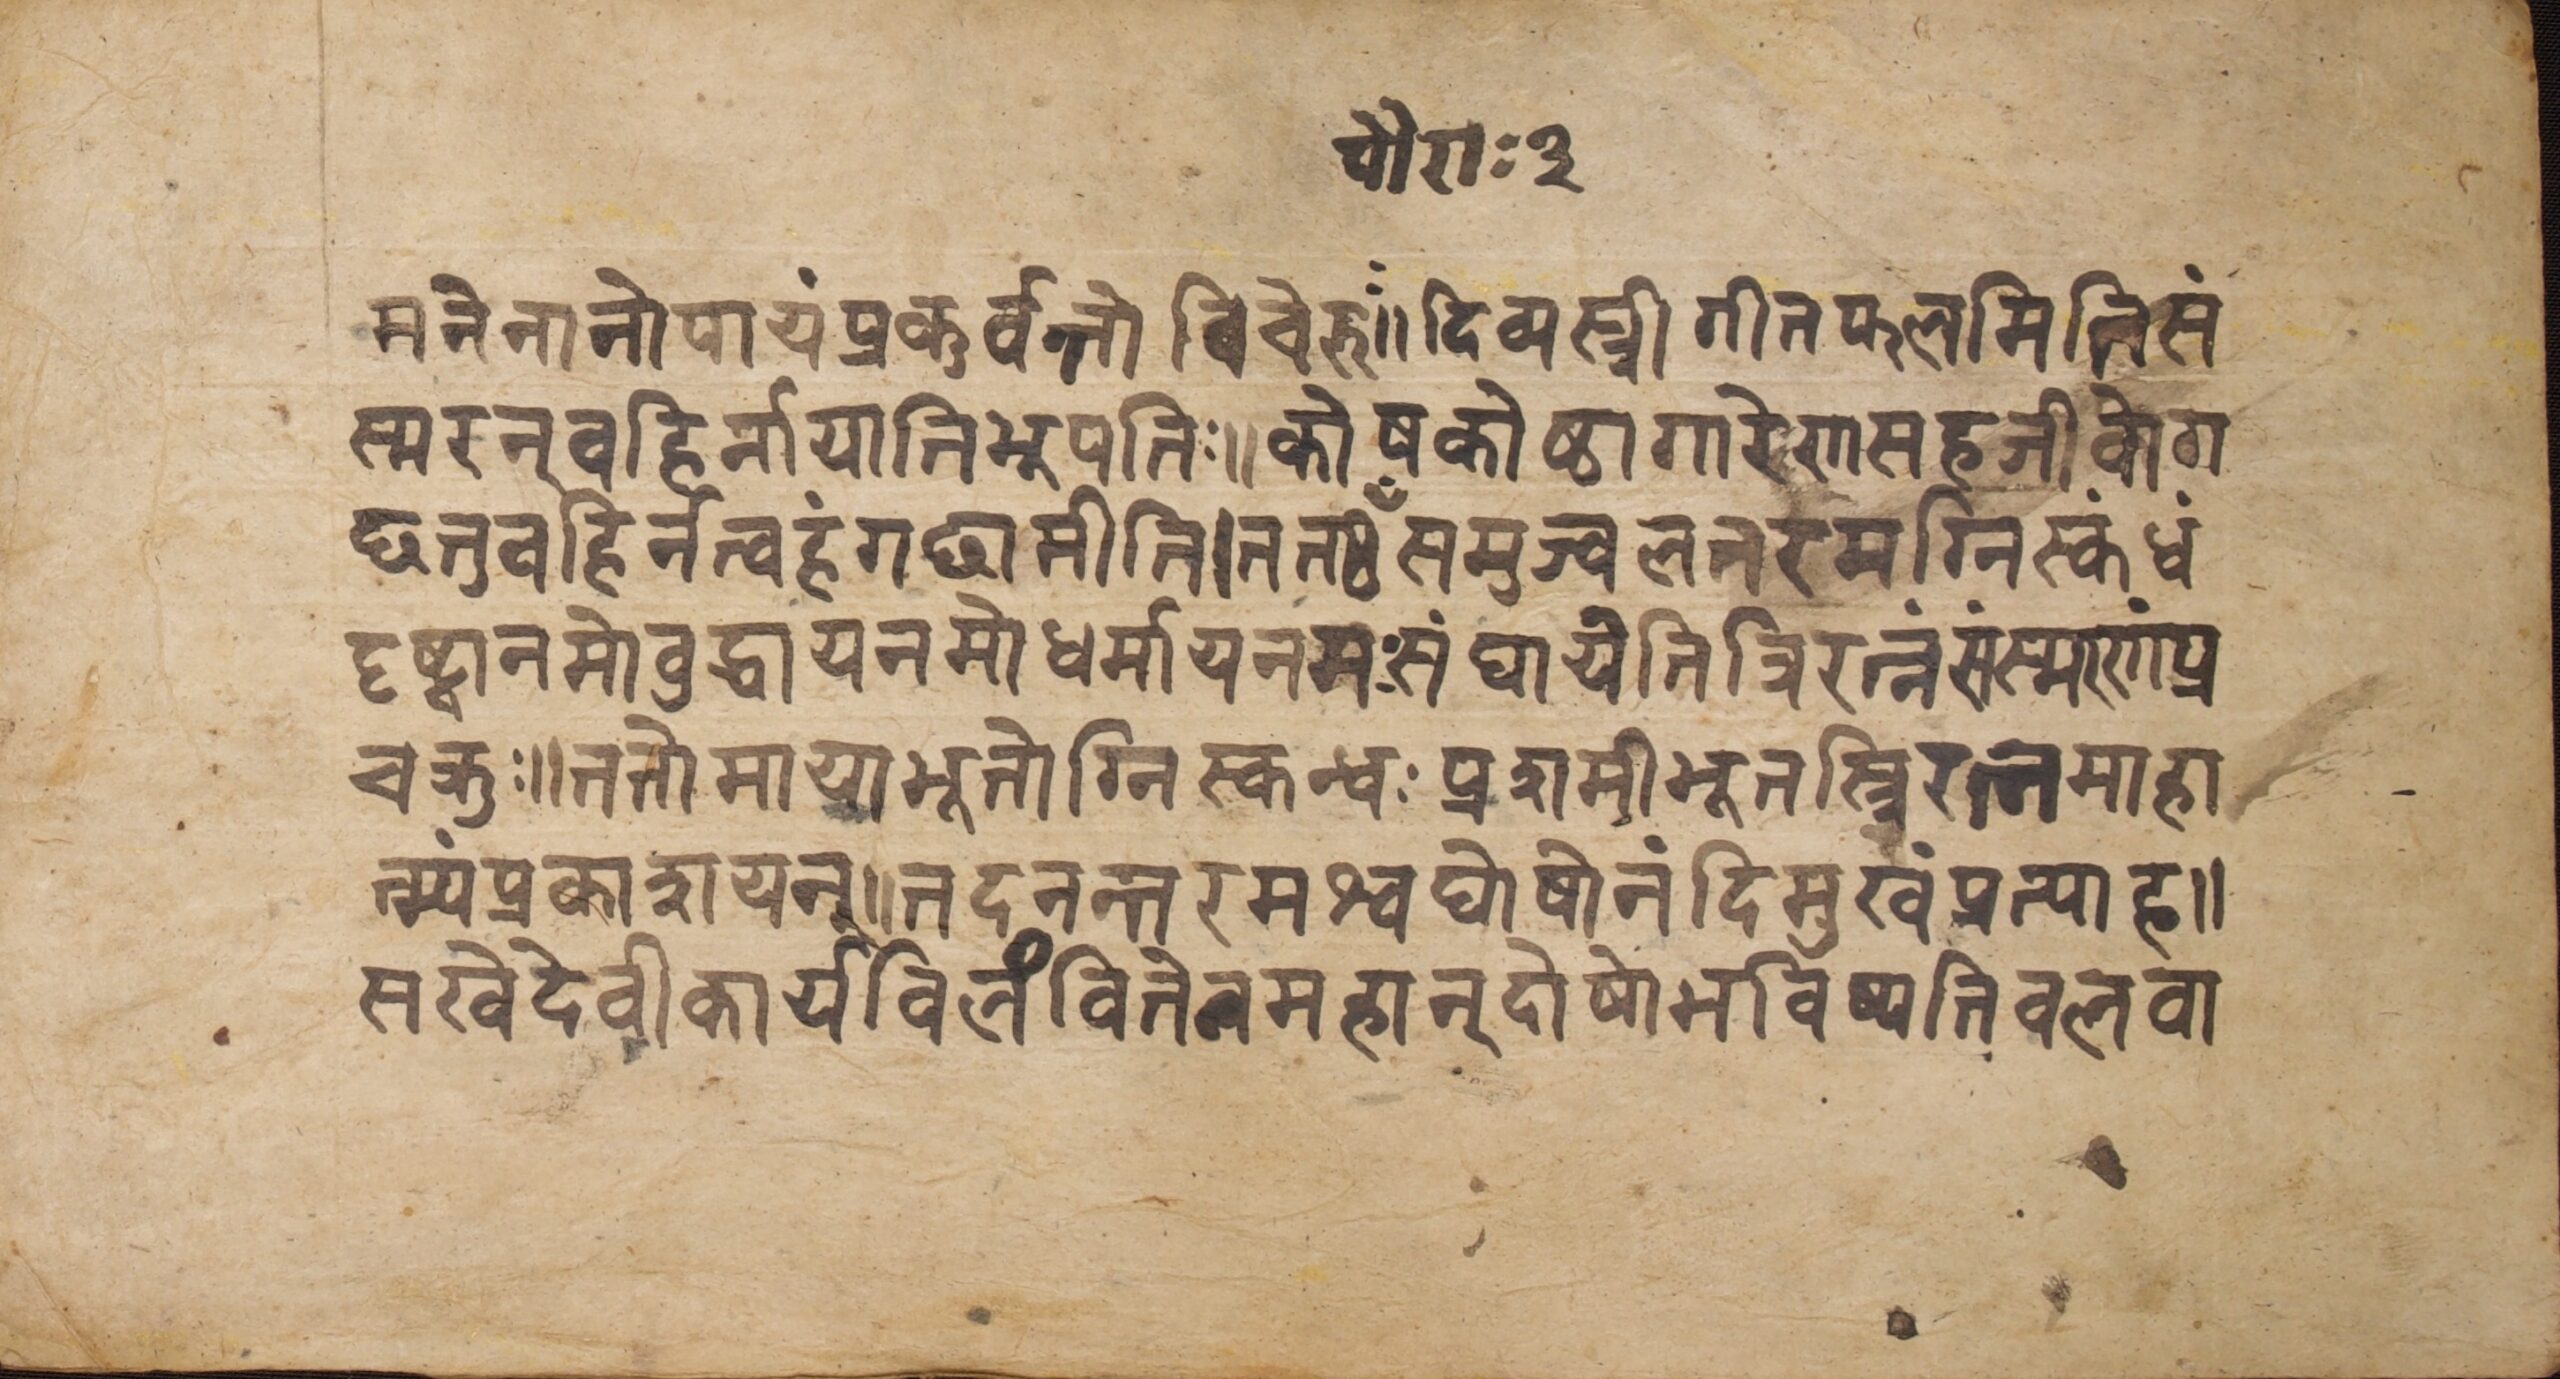 पौराः ३
मनेनानोपायंप्रकुर्वन्तो विचेरुः॥दिव्यस्त्री गीतफलमितिसं
स्मरन्वहिर्नायातिभूपतिः॥कोषकोष्ठागारेणसहजीवोग
छतुवहिर्नत्वहंगछामीति।ततसमुज्वलतरमग्निस्कंधं
दृष्ट्वानमोवुद्धायनमोधर्मायनमःसंघायेतित्रिरत्नंसंस्मरणंप्र
चक्रुः॥ततोमायाभूतोग्निस्कन्धः प्रशमीभूतस्त्रिरत्नमाहा
त्म्यंप्रकाशयन्॥तदनन्तरमश्वघोषोनंदिमुखंप्रत्याह॥
सखेदेवीकार्यविलंवितेनमहान्दोषोभविष्यतिवलवा